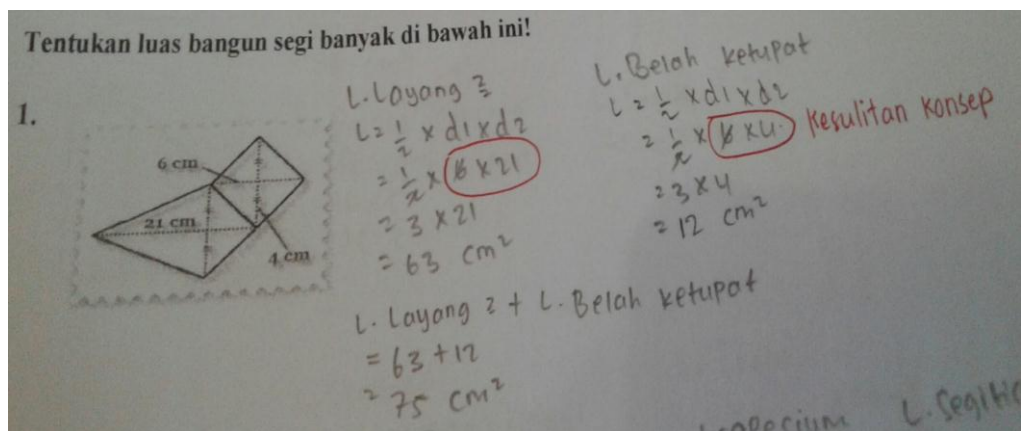 Tentukan luas bangun segi banyak di bawah ini!
1.
6 cm
21 cm
4 cm
L. Layang 2
L = 1/2 x d1 x d2
= 1/2 x 6 x 21
= 3 x 21
= 63 cm²
L. Belah ketupat
L = 1/2 x d1 x d2
= 1/2 x 6 x 4
= 3 x 4
= 12 cm²
Kesulitan konsep
L. Layang 2 + L. Belah ketupat
= 63 + 12
= 75 cm²
L. Segiti